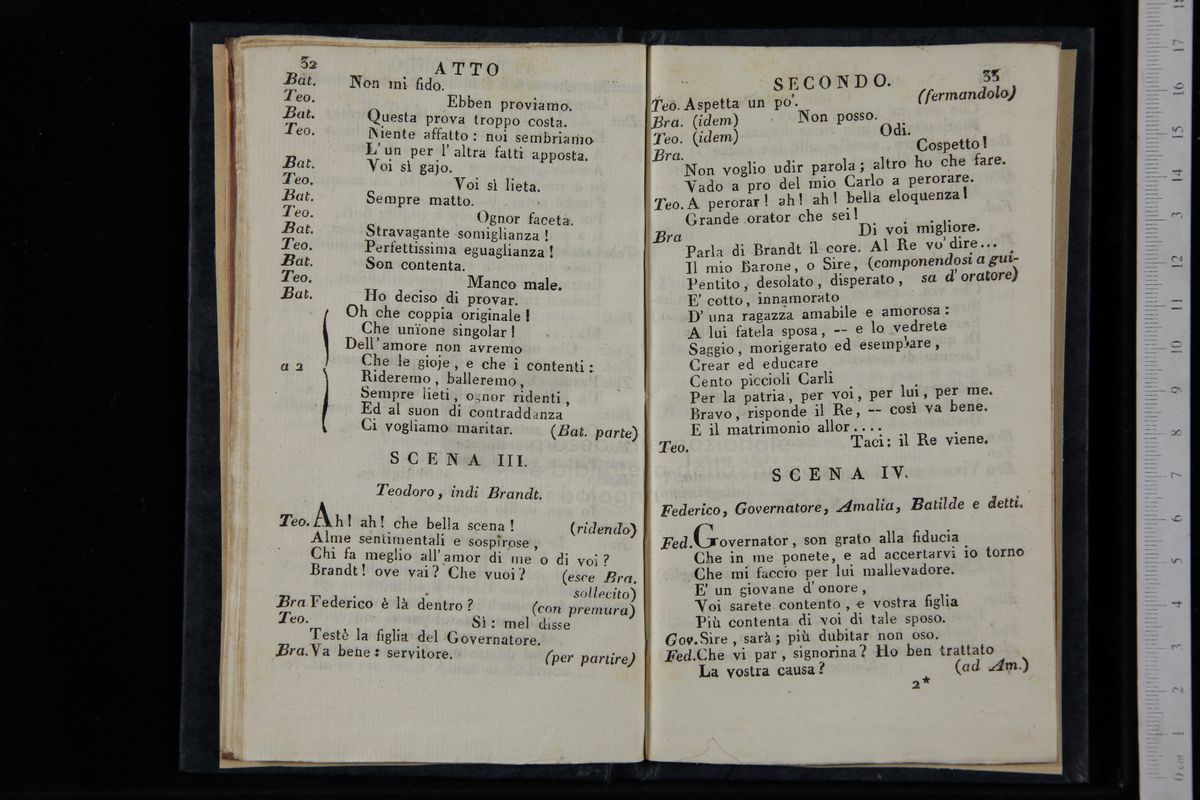 32
ATTO
Bat. Non mi fido.
Teo. Ebben proviamo.
Bat. Questa prova troppo costa.
Teo. Niente affatto: noi sembriamo
L'un per l'altra fatti apposta.
Bat. Voi sì gajo.
Teo. Voi sì lieta.
Bat. Sempre matto.
Teo. Ognor faceta.
Bat. Stravagante somiglianza!
Teo. Perfettissima eguaglianza!
Bat. Son contenta.
Teo. Manco male.
Bat. Ho deciso di provar.
Oh che coppia originale!
Che unione singolar!
Dell'amore non avremo
a 2 Che le gioje, e che i contenti:
Rideremo, balleremo,
Sempre lieti, ognor ridenti,
Ed al suon di contraddanza
Ci vogliamo maritar. (Bat. parte)
SCENA III.
Teodoro, indi Brandt.
Teo. Ah! ah! che bella scena! (ridendo)
Alme sentimentali e sospirose,
Chi fa meglio all'amor di me o di voi?
Brandt! ove vai? Che vuoi? (esce Bra.
sollecito)
Bra Federico è là dentro? (con premura)
Teo. Sì: mel disse
Testè la figlia del Governatore.
Bra. Va bene: servitore. (per partire)
SECONDO.
33
Teo. Aspetta un po'. (fermandolo)
Bra. (idem) Non posso.
Teo. (idem) Odi.
Bra. Cospetto!
Non voglio udir parola; altro ho che fare.
Vado a pro del mio Carlo a perorare.
Teo. A perorar! ah! ah! bella eloquenza!
Grande orator che sei!
Bra Di voi migliore.
Parla di Brandt il core. Al Re vo' dire...
Il mio Barone, o Sire, (componendosi a gui-
Pentito, desolato, disperato, sa d'oratore)
E' cotto, innamorato
D'una ragazza amabile e amorosa:
A lui fatela sposa, — e lo vedrete
Saggio, morigerato ed esemplare,
Crear ed educare
Cento piccioli Carli
Per la patria, per voi, per lui, per me.
Bravo, risponde il Re, — così va bene.
E il matrimonio allor....
Teo. Taci: il Re viene.
SCENA IV.
Federico, Governatore, Amalia, Batilde e detti.
Fed. Governator, son grato alla fiducia
Che in me ponete, e ad accertarvi io torno
Che mi faccio per lui mallevadore.
E' un giovane d'onore,
Voi sarete contento, e vostra figlia
Più contenta di voi di tale sposo.
Gov. Sire, sarà; più dubitar non oso.
Fed. Che vi par, signorina? Ho ben trattato
La vostra causa? (ad Am.)
2*